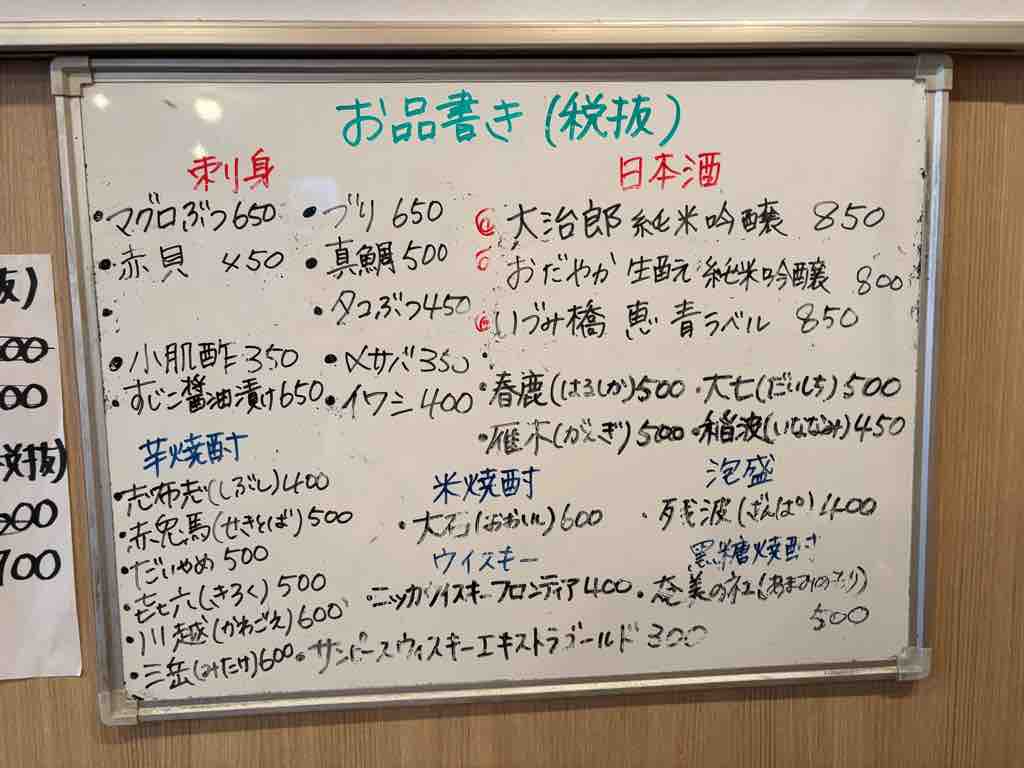 お品書き(税抜)
刺身
・マグロぶつ650
・ブリ 650
・赤貝 450
・真鯛500
・
・タコぶつ450
・小肌酢350
・〆サバ350
・すじこ醤油漬け650
・イワシ400
日本酒
大治郎 純米吟醸 850
おだやか 生酛 純米吟醸 800
いづみ橋 恵 青ラベル 850
・春鹿(はるしか)500
・大七(だいしち)500
・雁木(がんぎ)500
・稲波(いななみ)450
芋焼酎
・志布志(しぶし)400
・赤兎馬(せきとば)500
・だいやめ500
・㐂六(きろく)500
・川越(かわごえ)600
・三岳(みたけ)600
米焼酎
・大石(おおいし)600
ウイスキー
・ニッカウイスキーフロンティア400
・サンピースウィスキーエキストラゴールド300
泡盛
・残波(ざんぱ)400
黒糖焼酎
・奄美の杜(あまみのもり)
500
抜)
00
00
税抜)
00
700